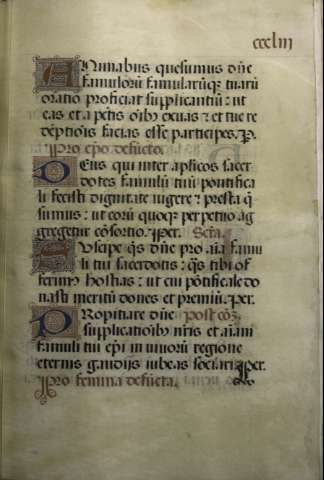 cccliii
Animabus quesumus dñe
famulorū famularūq; tuarū
oratio proficiat supplicantiū: ut
eas et a pctis oībꝰ exuas ⁊ et tue re
dēptiōis facias esse participes. P.
Pro epō defūcto.
Deus qui inter aplicos sacer
dotes famulū tuū pontifica
li fecisti dignitate uigere: presta q̄
sumus: ut eorū quoqꝫ perpetuo ag
gregetur cōsortio. Per. Scta.
Suscipe q̄s dñe pro aīa famu
li tui sacerdotis: q̄s tibi of
ferimꝰ hostias: ut cui pōtificale do
nasti meritū dones et premiū. Per.
Propitiare dñe postcō.
supplicatiōibꝰ nr̄is et aīam
famuli tui epī in uiuorū regione
eternis gaudijs iubeas sociari. Per.
Pro femina defūcta.